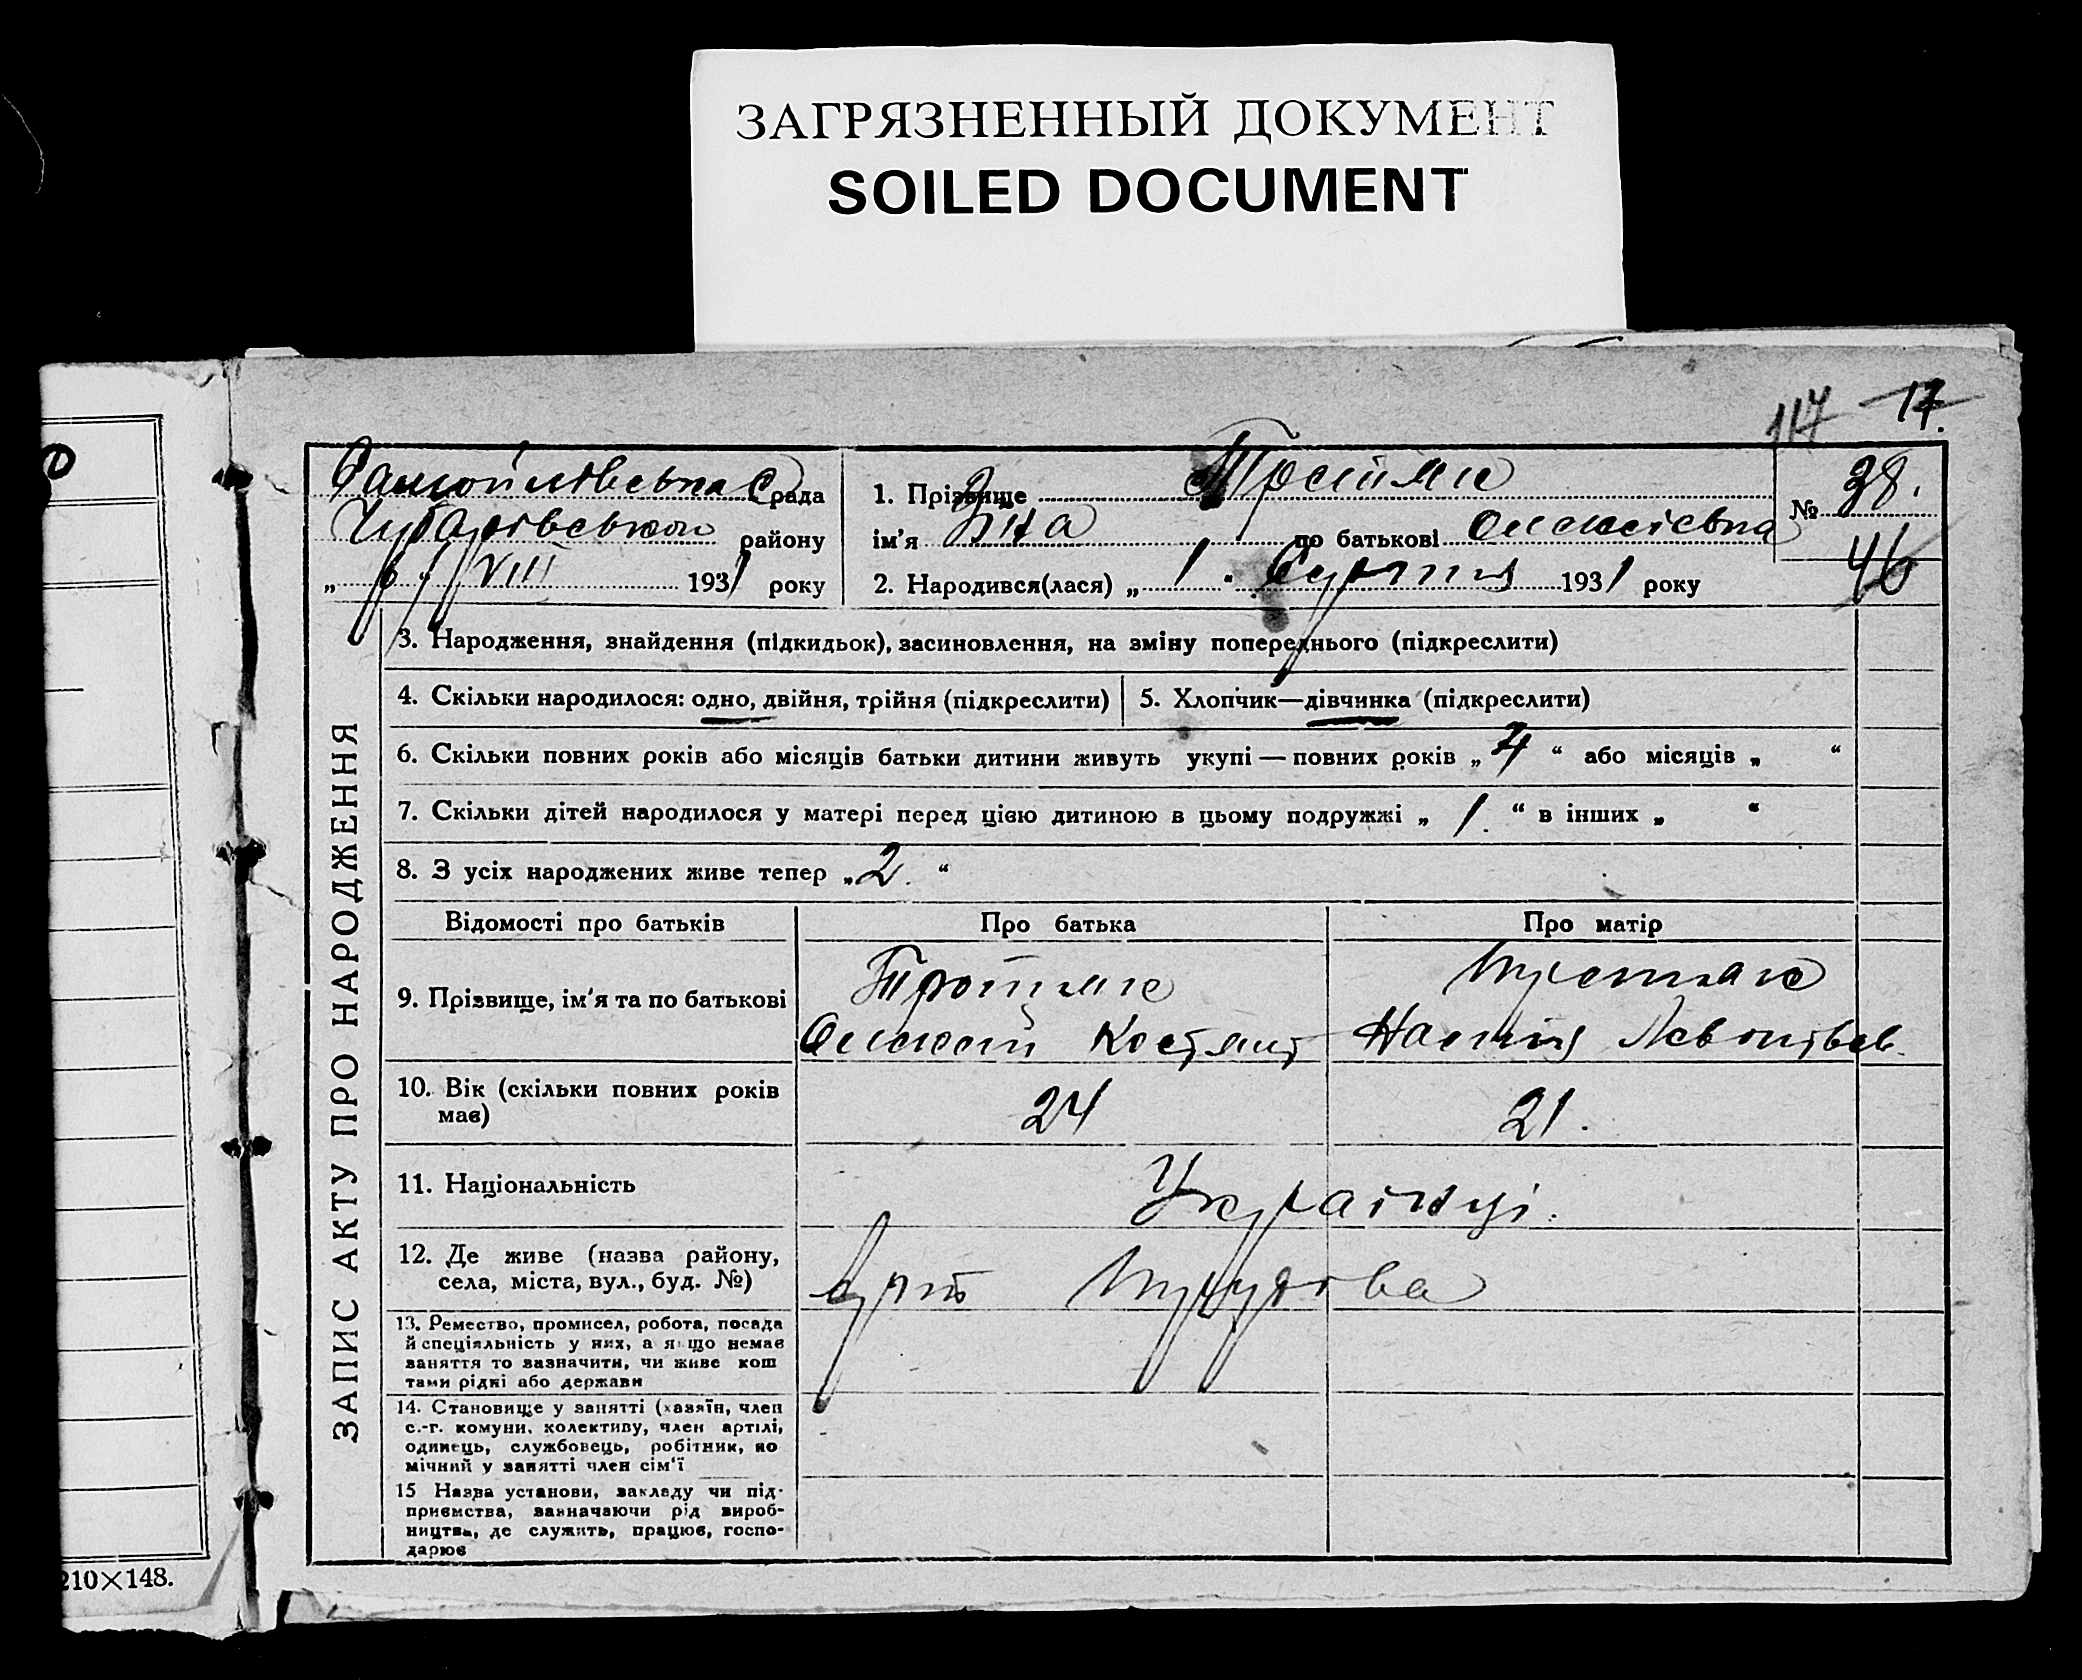 ЗАГРЯЗНЕННЫЙ ДОКУМЕНТ
SOILED DOCUMENT
117 17.
Самойлівська С рада
Чубарівського району
„ 6 “ VIII 1931 року
1. Прізвище Тростянс
ім'я Зіна по батькові Олексіевна
2. Народився(лася) „ 1 “ Серпня 1931 року
№ 38.
46
ЗАПИС АКТУ ПРО НАРОДЖЕННЯ
3. Народження, знайдення (підкидьок), засиновлення, на зміну попереднього (підкреслити)
4. Скільки народилося: одно, двійня, трійня (підкреслити)
5. Хлопчик—дівчинка (підкреслити)
6. Скільки повних років або місяців батьки дитини живуть укупі — повних років „ 4 “ або місяців „ “
7. Скільки дітей народилося у матері перед цією дитиною в цьому подружжі „ 1. “ в інших „ “
8. З усіх народжених живе тепер „ 2. “
Відомості про батьків
Про батька
Про матір
9. Прізвище, ім'я та по батькові
Олексій Костянт
Настія Левонтвев.
10. Вік (скільки повних років
має)
24
21.
11. Національність
Українці.
12. Де живе (назва району,
села, міста, вул., буд. №)
13. Ремество, промисел, робота, посада
й спеціяльність у них, а якщо немає
заняття то зазначити, чи живе кош
тами рідні або держави
14. Становище у занятті (хазяїн, член
с.-г. комуни, колективу, член артілі,
одинець, службовець, робітник, по
мічний у занятті член сім'ї
15 Назва установи, закладу чи під-
приємства, зазначаючи рід вироб-
ництва, де служить, працює, госпо-
дарює
210×148.